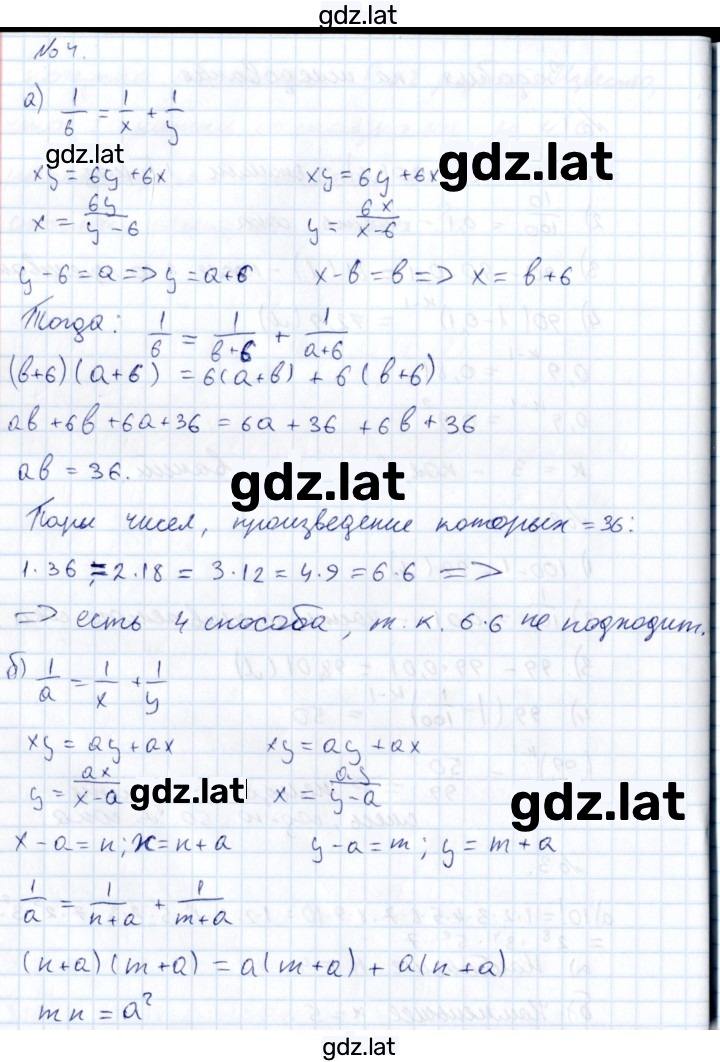 gdz.lat
№4.
а) 1/6 = 1/x + 1/y
gdz.lat
xy = 6y + 6x xy = 6y + 6x
gdz.lat
x = 6y/(y-6) y = 6x/(x-6)
y - 6 = a => y = a+6 x - в = в => x = в+6
Тогда: 1/6 = 1/(в+6) + 1/(a+6)
(в+6)(a+6) = 6(a+в) + 6(в+6)
aв + 6в + 6a + 36 = 6a + 36 + 6в + 36
aв = 36.
gdz.lat
Пары чисел, произведение которых = 36:
1·36 = 2·18 = 3·12 = 4·9 = 6·6 =>
=> есть 4 способа, т. к. 6·6 не подходит.
б) 1/a = 1/x + 1/y
xy = ay + ax xy = ay + ax
y = ax/(x-a) x = ay/(y-a)
gdz.lat
gdz.lat
x - a = n; x = n + a y - a = m; y = m + a
1/a = 1/(n+a) + 1/(m+a)
(n+a)(m+a) = a(m+a) + a(n+a)
mn = a²
gdz.lat